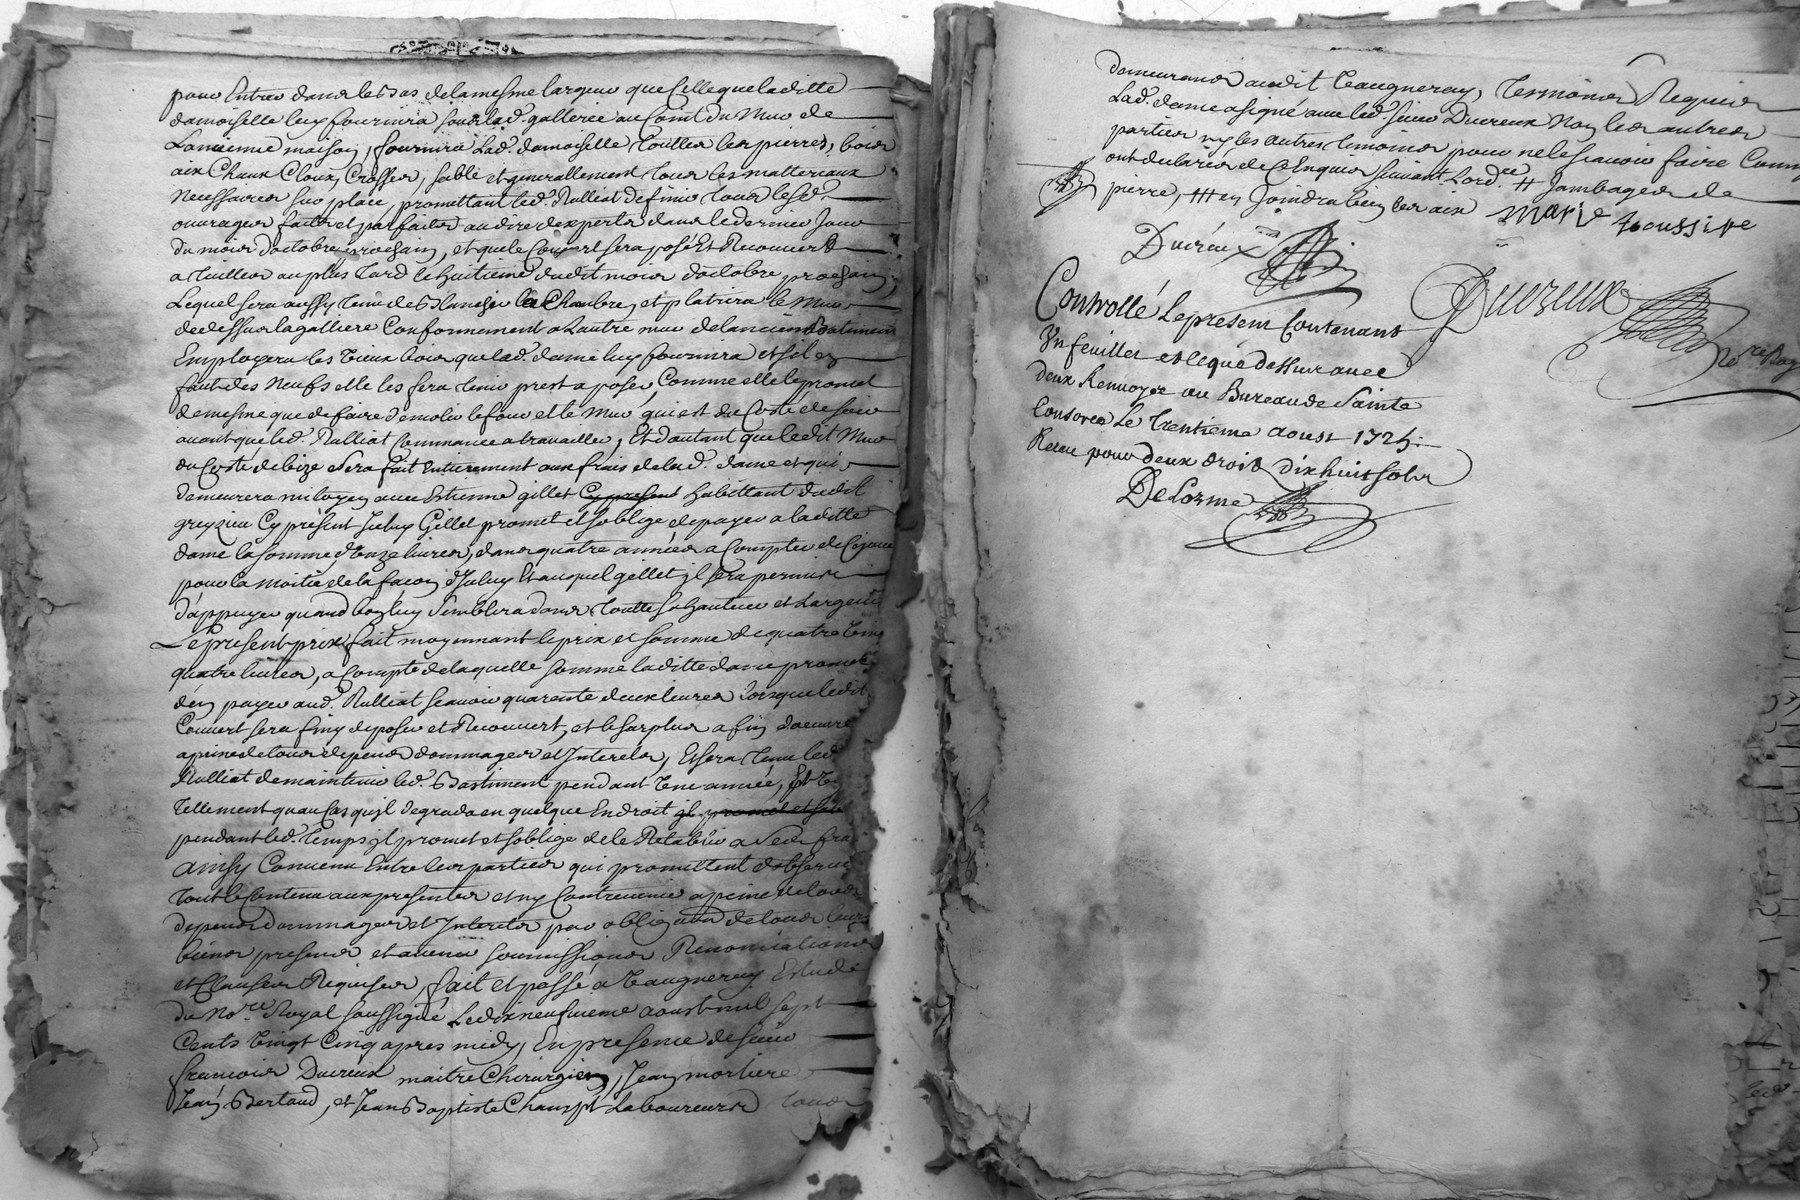 pour Entrer dans le bas de la mesme largeur que Celle que laditte
damoiselle luy fournira sous lad. gallerie au Coint du Mur de
Lancienne maison, fournira Lad. damoiselle Touttes les pierres, bois
aix Chaux Cloux, Crosses, sable et generallement Tous les matteriaux
Necessaires sur place, promettant led. Rulliat de finir Tous lesd.
ouvrages faits et parfaits au dire dexperts dans le dernier Jour
du mois doctobre prochain, et que le Couvert sera posé Et Recouvert
a Tuilles au plus Tard le huitieme dudit mois doctobre prochain,
Lequel sera aussy Tenu de Blanchir la Chambre, et platrira le Mur
de dessus la galliere Conformement a Lautre mur de lancien Batiment
Employera les vieux bois que lad. dame luy fournira et sil en
faut des Neufs elle les fera Tenir prest a poser, Comme elle le promet
de mesme que de faire demolir le four et le Mur qui est du Costé de soir
avant que led. Rulliat Commance a travailler, Et dautant que ledit Mur
du Costé de bize sera fait Entierement aux frais de lad. dame et qui
demeurera mitoyen avec Estienne gillet Cy present habittant dudit
greyzieu Cy présent Iceluy Gillet promet et soblige de payer a laditte
dame la somme d'onze livres, dans quatre années a Compter de Ce jour
pour la moitié de la façon d'Iceluy Et auquel gillet il sera permis
d'appuyer quand bon luy semblera dans Toutte sa hauteur et Largeur
Le present prix fait moyennant le prix et somme de quatre vingt
quatre livres, a Compte de laquelle somme laditte dame promet
den payer aud. Rulliat scavoir quarente deux livres Lorsque ledit
Couvert sera finy de poser et Recouvert, et le surplus a fin doeuvre
a peine de tous depens dommages et Interets, Et sera Tenu led.
Rulliat de maintenir led. Bastiment pendant Une année, Et
Tellement quau Cas quyl degrada en quelque Endroit il promet et
pendant led. Temps yl promet et soblige de le Retablir a Ses frais
Ainsy Convenu Entre les parties qui promettent dobserver
Tout le Contenu aux presentes et ny Contrevenir a peine de tous
depens dommages et Interets par obligaon de tous leurs
biens presens et avenir soumissions Renonciations
et Clauses Requises, fait et passé a Vaugneray Estude
du Nore. Royal soussigné Le dix neufvieme aoust mil sept
Cents Vingt Cinq apres midy, En presence de sieur
francois Ducreux maitre Chirurgien, Jean mortiere
Jean Bertaud, et Jean Baptiste Laboureurs Tous
demeurans audit Vaugneray, Temoins Requis
Lad. dame a signé avec led. sieur Ducreux Non les autres
parties ny les autres temoins pour ne le scavoir faire Comme
ont declaré de Ce Enquis suivant Lordce. # Jambages de
pierre, ## en Joindra bien les aix Marie
Ducreux
Ducreux
Nore. Roy
Controllé Le present Contenant
Un feuillet et leque dessus avec
deux Renvoyes au Bureau de Sainte
Consorce Le Trentieme aoust 1725.
Receu pour deux droits Dix huit sols
DeLorme